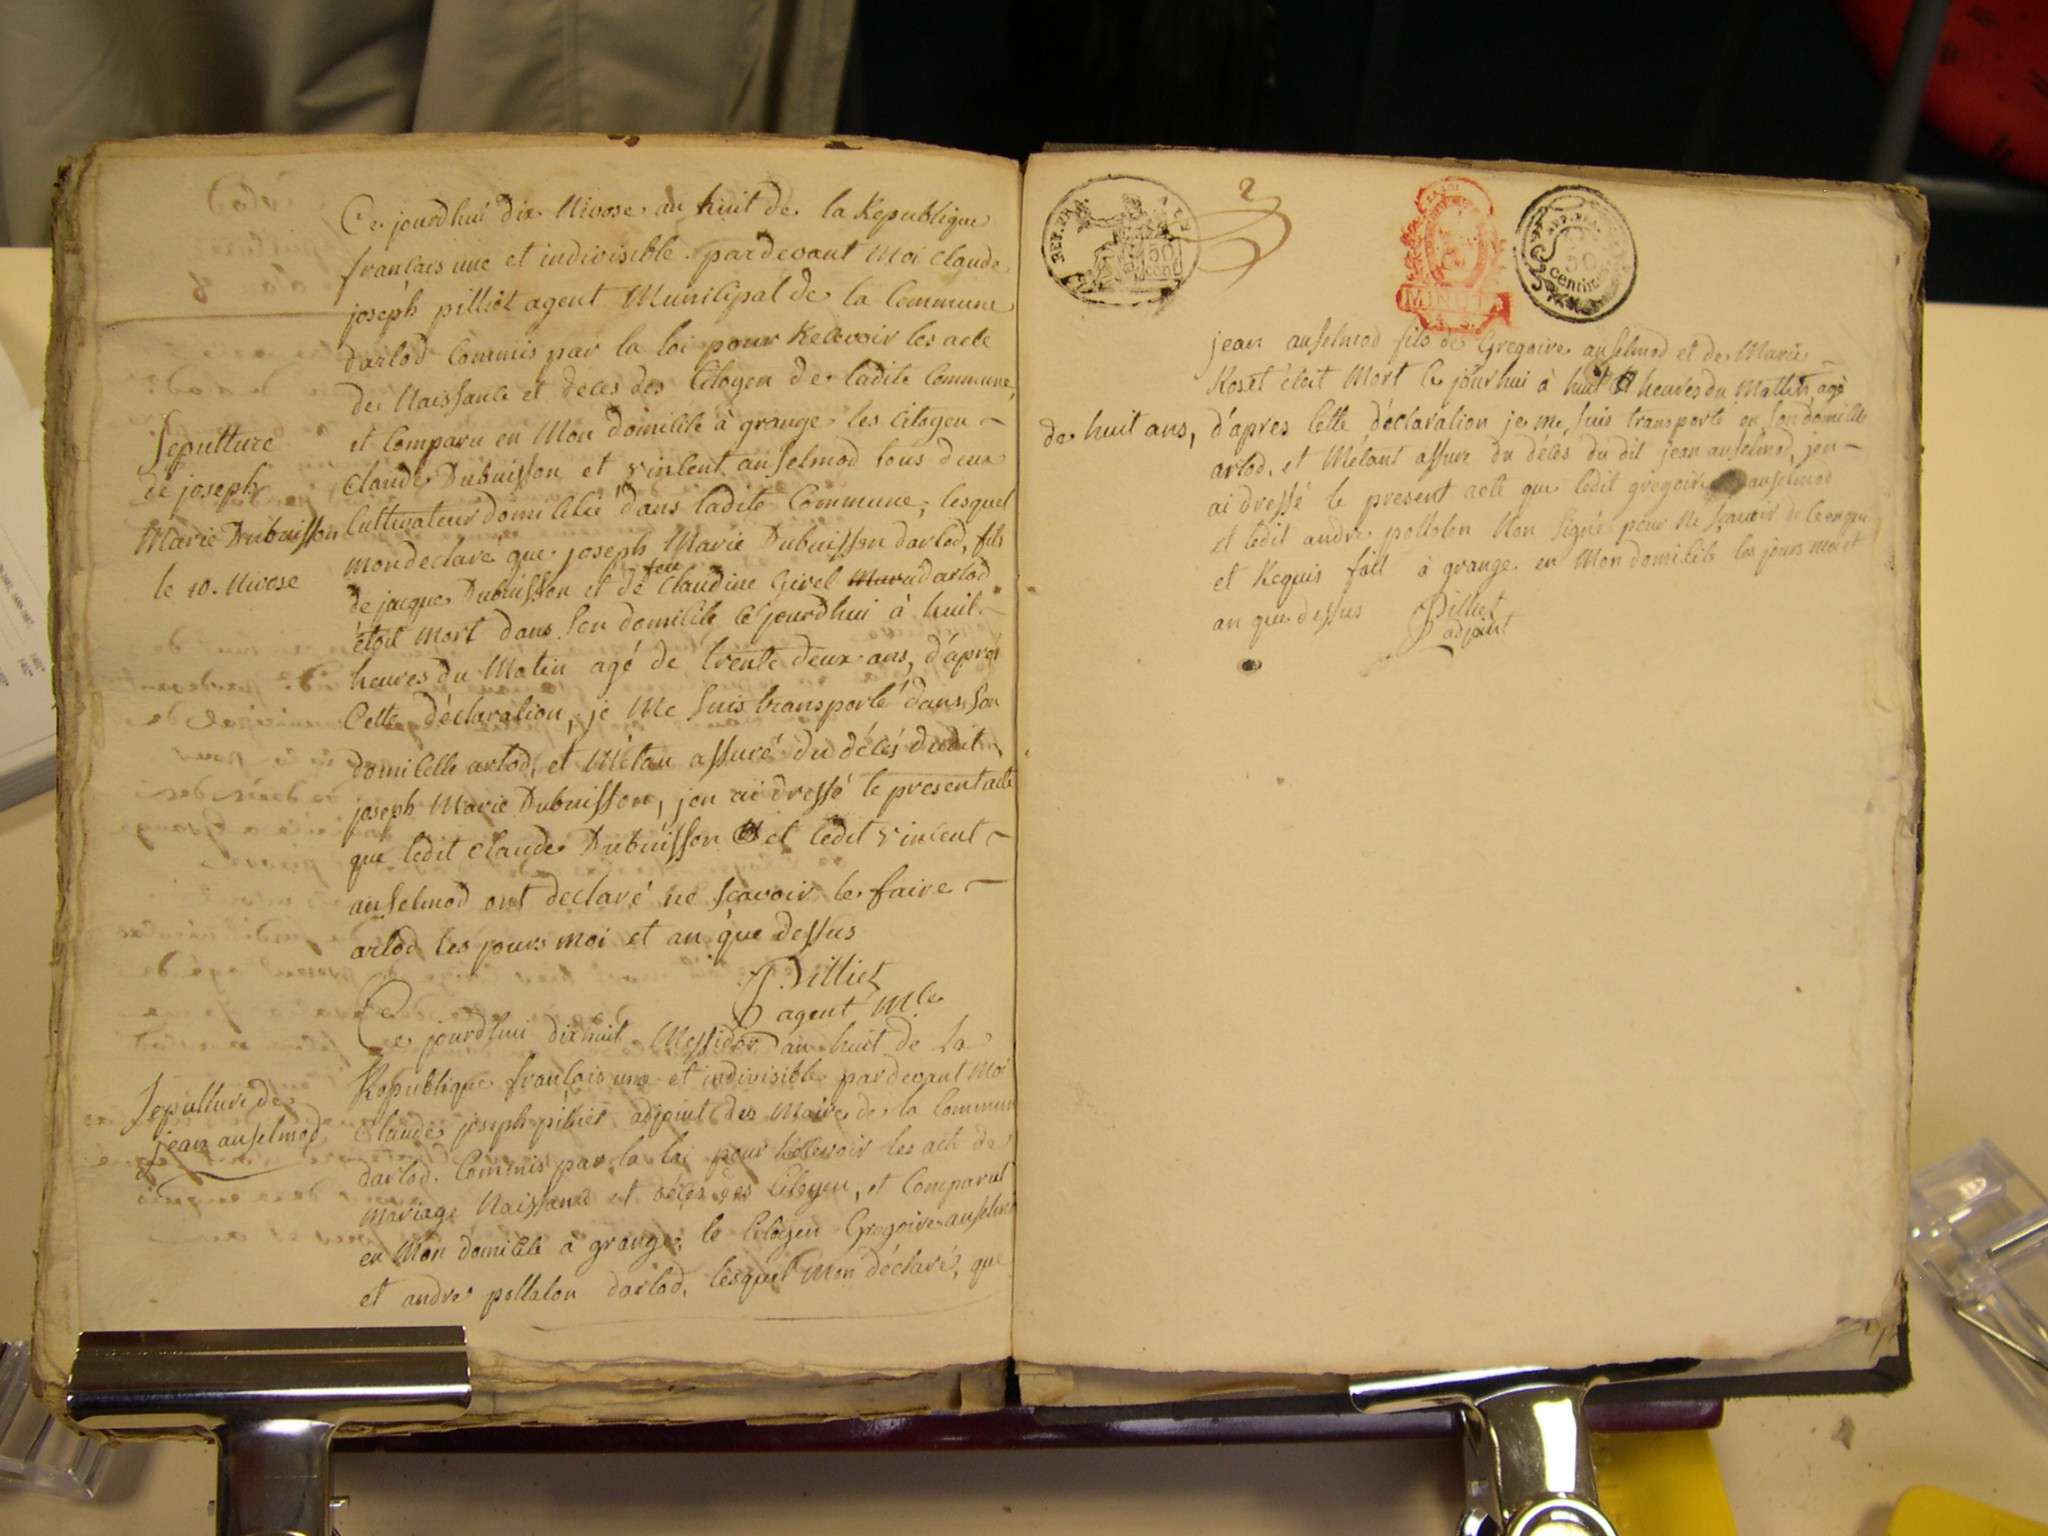 Ce jourdhui dix Nivose an huit de la Republique
francais une et indivisible pardevant Moi claude
joseph pilliet agent Municipal de la Commune
darlod Commis par la loi pour Recevoir les acte
de Naissance et deces des Citoyen de ladite Commune,
et Comparu en Mon domicile à grange les Citoyen
Claude Dubuisson et vincent anselmod tous deux
Cultivateur domicilié dans ladite Commune, lesquel
mon declaré que joseph Marie Dubuisson darlod, fils
de jacque Dubuisson et de feu Claudine Girel darlod
étoit mort dans Son domicile Cejourdhui à huit
heures du Matin agé de trente deux ans, d'aprés
Cette déclaration, je Me Suis transporté dans Son
domicille arlod, et Métan assuré du décés dudit
joseph Marie Dubuisson, jen ai dressé le present acte
que ledit Claude Dubuisson et ledit vincent
anselmod ont declaré ne scavoir le faire
arlod les jours moi et an que dessus
Pilliet
agent Mle
Sepulture
de joseph
Marie Dubuisson
le 10. Nivose
Ce jourdhui dixhuit Messidor an huit de la
Republique francais une et indivisible pardevant Moi
Claude joseph pilliet adjoint des Maire de la Commun
darlod. Commis par la loi pour Recevoir les acte de
mariage Naissance et décès des Citoyen, et Comparut
en Mon domicile à grange, le Citoyen Gregoire anselmo
et andre pollolon darlod, lesquel mon déclaré, que
Sepulture de
jean anselmod
REP. FRA.
50
cent
2
MINUTE
50
centim
jean anselmod fils de Gregoire anselmod et de Marie
Roset étoit Mort Ce jourhui à huit heures du Mattin agé
de huit ans, d'apres Cette déclaration je me Suis transporté en Son domicille
arlod, et Métant assuré du décès du dit jean anselmod, jen
ai dressé le present acte que ledit gregoire anselmod
et ledit andre pollolon Non Signé pour Ne Scavoir de Ce enquis
et Requis fait à grange en Mon domicile les jours moi et
an que dessus
Pilliet
adjoint